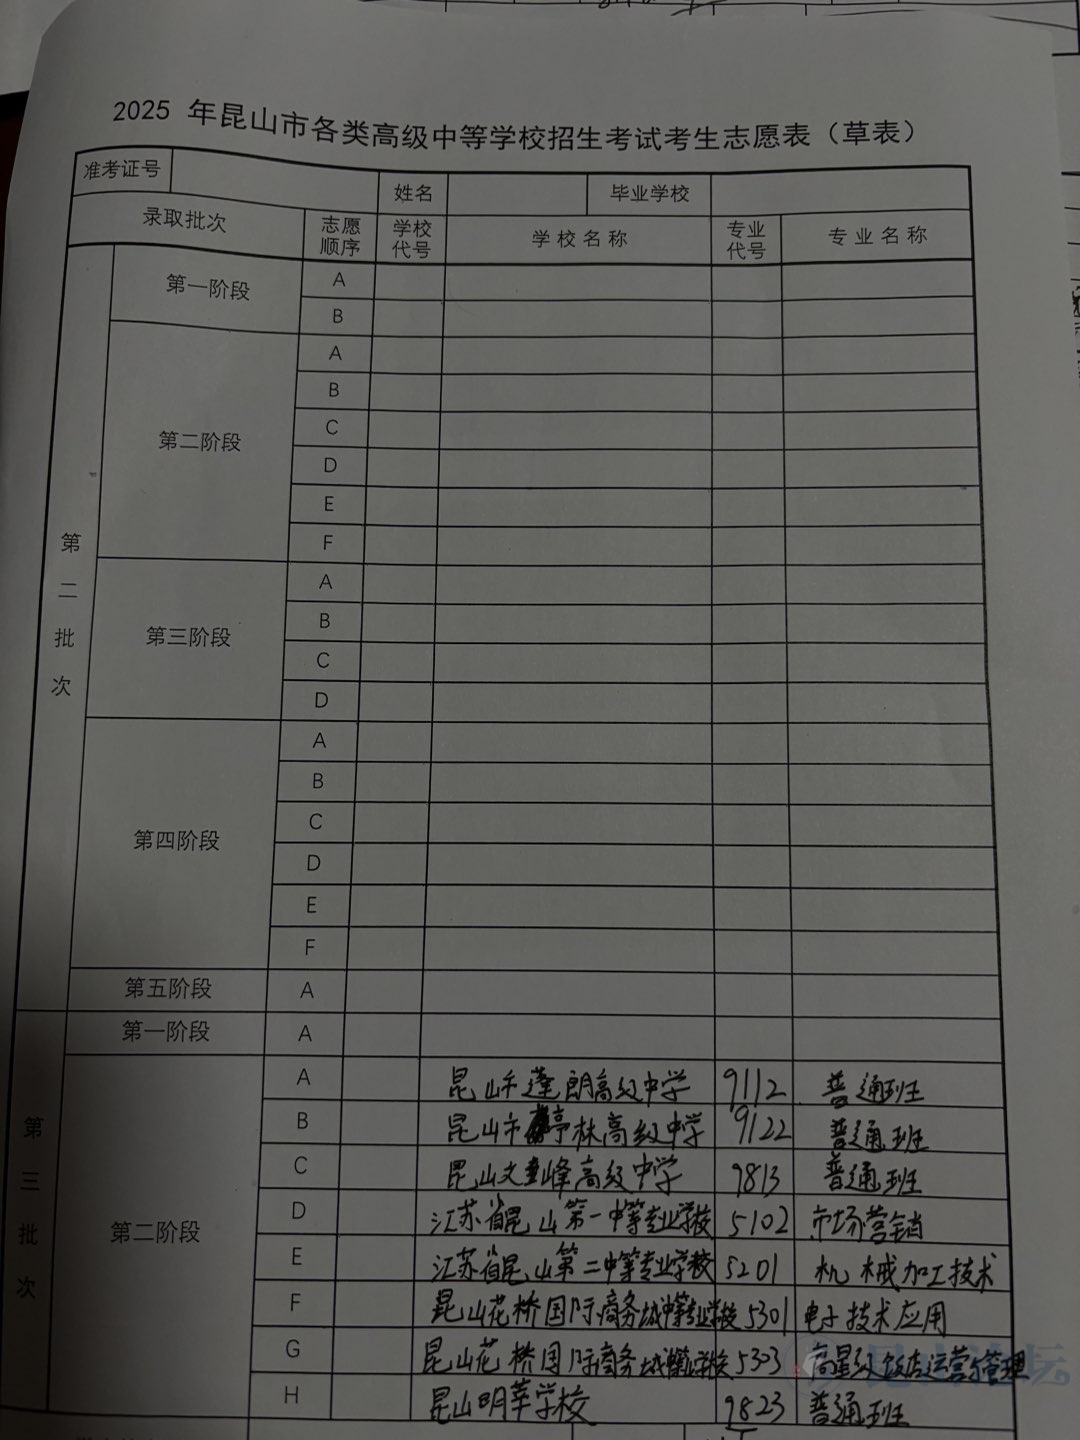 2025 年昆山市各类高级中等学校招生考试考生志愿表（草表）
准考证号 姓名 毕业学校
录取批次 志愿顺序 学校代号 学校名称 专业代号 专业名称
第二批次
第一阶段 A
B
第二阶段 A
B
C
D
E
F
第三阶段 A
B
C
D
第四阶段 A
B
C
D
E
F
第五阶段 A
第三批次
第一阶段 A
第二阶段
A 昆山市蓬朗高级中学 9112 普通班
B 昆山市亭林高级中学 9122 普通班
C 昆山文峰高级中学 9813 普通班
D 江苏省昆山第一中等专业学校 5102 市场营销
E 江苏省昆山第二中等专业学校 5201 机械加工技术
F 昆山花桥国际商务城中等专业学校 5301 电子技术应用
G 昆山花桥国际商务城中等专业学校 5303 高星级饭店运营与管理
H 昆山明莘学校 9823 普通班